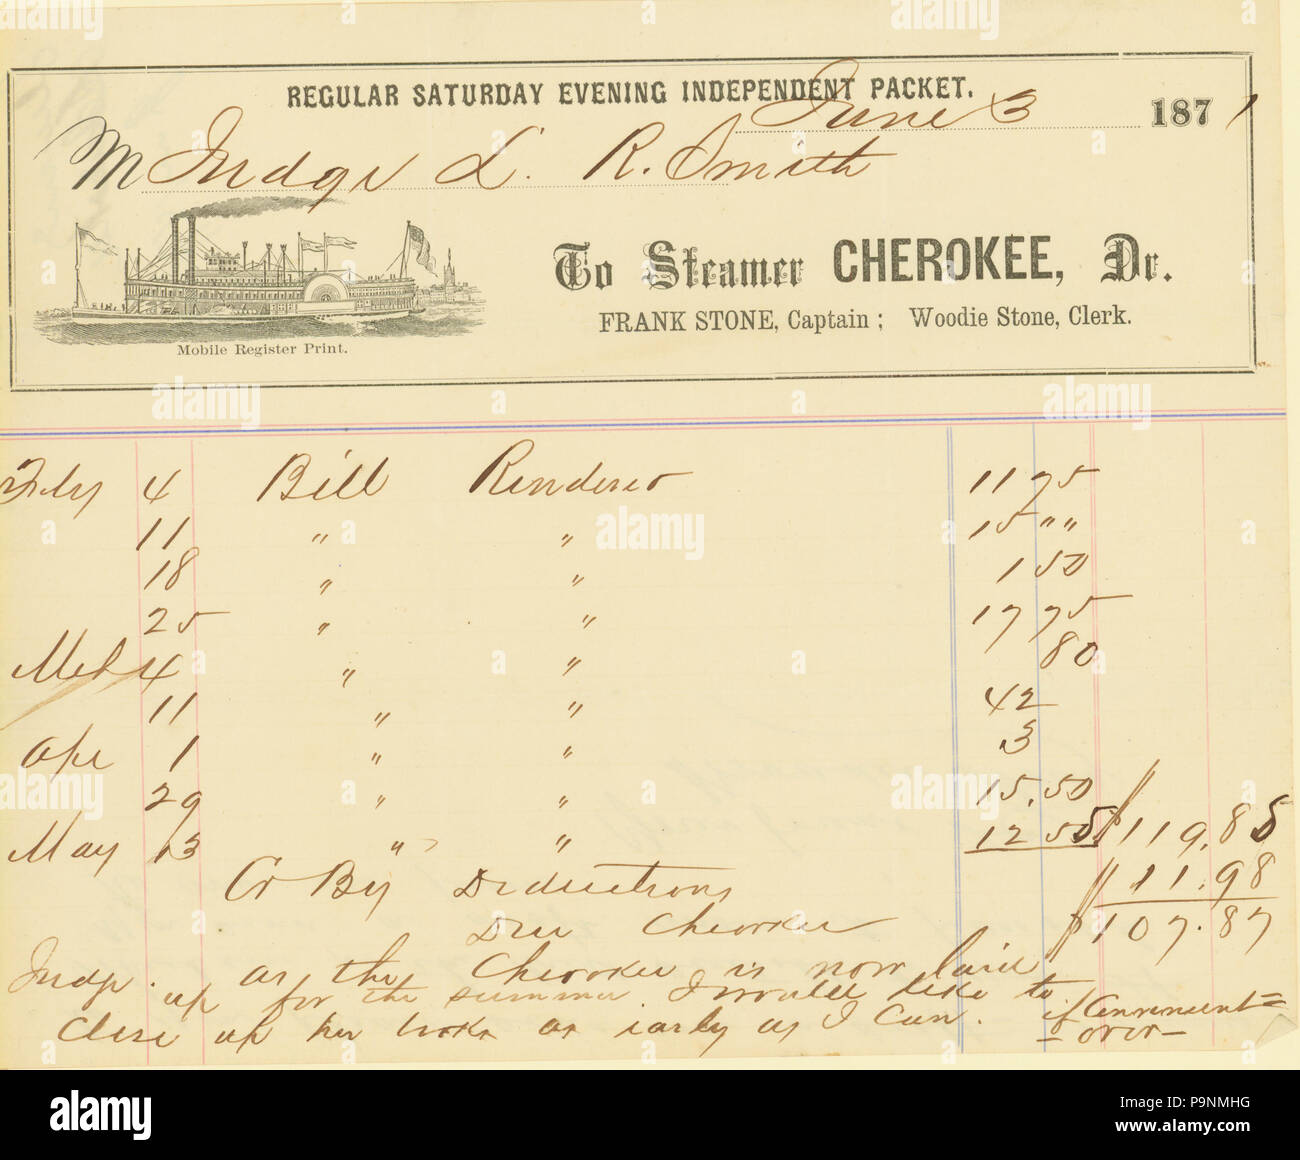 REGULAR SATURDAY EVENING INDEPENDENT PACKET.
June 3 1871
M Judge L. R. Smith
To Steamer CHEROKEE, Dr.
FRANK STONE, Captain; Woodie Stone, Clerk.
Mobile Register Print.
Feby 4 Bill Rendered 11 75
11 " " 15 " "
18 " " 1 50
25 " " 17 75
Mch 4 " " 80
11 " " 42
Apr 1 " " 3
29 " " 15.50
May 13 " " 12 55 $119.85
Cr By Deductions 11.98
Due Cherokee $107.87
Judge. as the Cherokee is now laid
up for the summer I would like to
close up her books as early as I can. if Convenient =
- over -
alamy
a
Image ID: P9NMHG
www.alamy.com